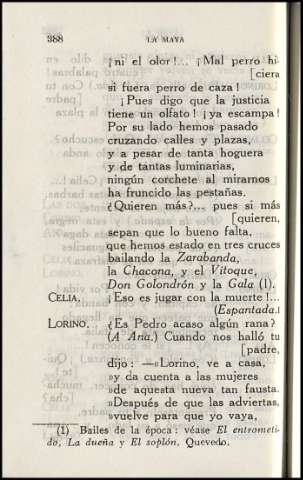 388 LA MAYA
¡ni el olor!... ¡Mal perro hi-
[ciera
si fuera perro de caza!
¡Pues digo que la justicia
tiene un olfato! ¡ya escampa!
Por su lado hemos pasado
cruzando calles y plazas,
y a pesar de tanta hoguera
y de tantas luminarias,
ningún corchete al mirarnos
ha fruncido las pestañas.
¿Quieren más?... pues si más
[quieren,
sepan que lo bueno falta,
que hemos estado en tres cruces
bailando la Zarabanda,
la Chacona, y el Vitoque,
Don Golondrón y la Gala (1).
CELIA. ¡Eso es jugar con la muerte!...
(Espantada.)
LORINO. ¿Es Pedro acaso algún rana?
(A Ana.) Cuando nos halló tu
[padre,
dijo: —«Lorino, ve a casa,
»y da cuenta a las mujeres
»de aquesta nueva tan fausta.
»Después de que las adviertas,
»vuelve para que yo vaya,
(1) Bailes de la época: véase El entrometi-
do, La dueña y El soplón, Quevedo.